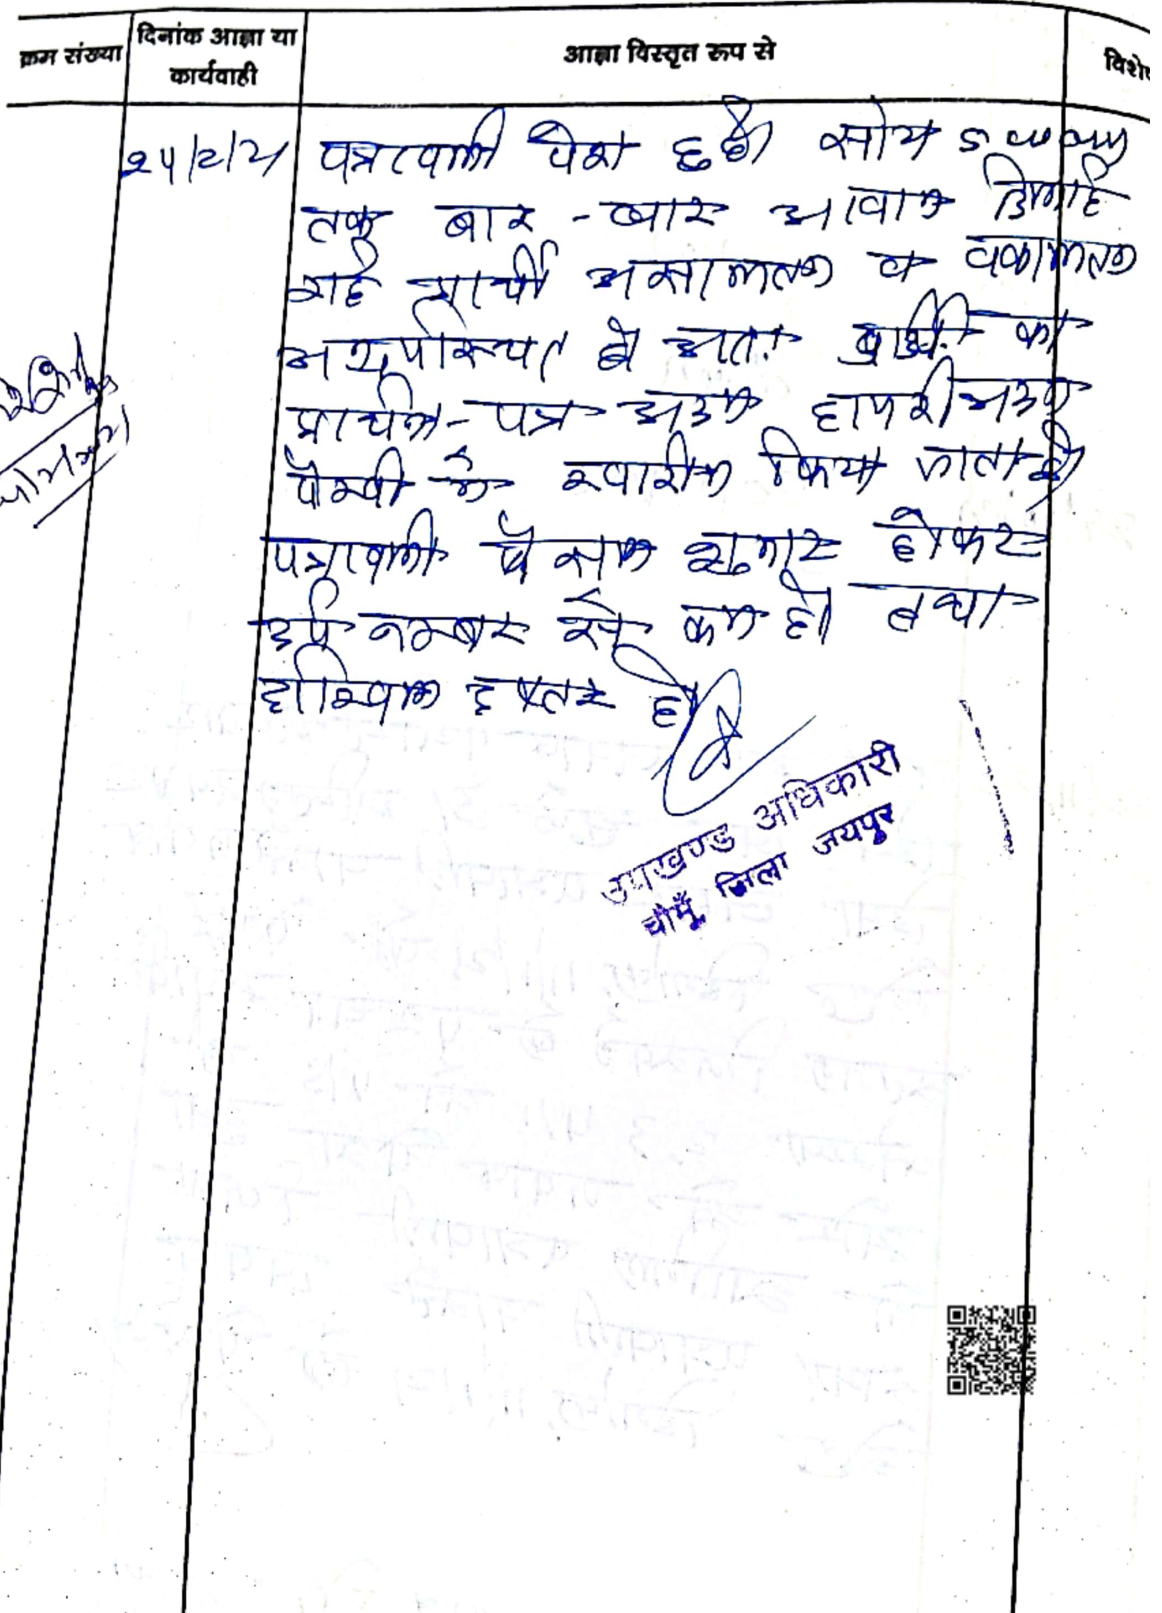 क्रम संख्या
दिनांक आज्ञा या
कार्यवाही
आज्ञा विस्तृत रूप से
विशे
पत्रावली पेश हुई। सांय
तक बार-बार आवाज
गई प्रार्थी असालतन व वकालतन
अनुपस्थित है अतः प्रार्थी का
प्रार्थना-पत्र अदम हाजरी अदम
पैरवी में खारीज किया जाता है।
पत्रावली फैसल शुमार होकर
नम्बर से कम हो तथा
दाखिल दफ्तर हो।
उपखण्ड अधिकारी
चौमूँ, जिला जयपुर